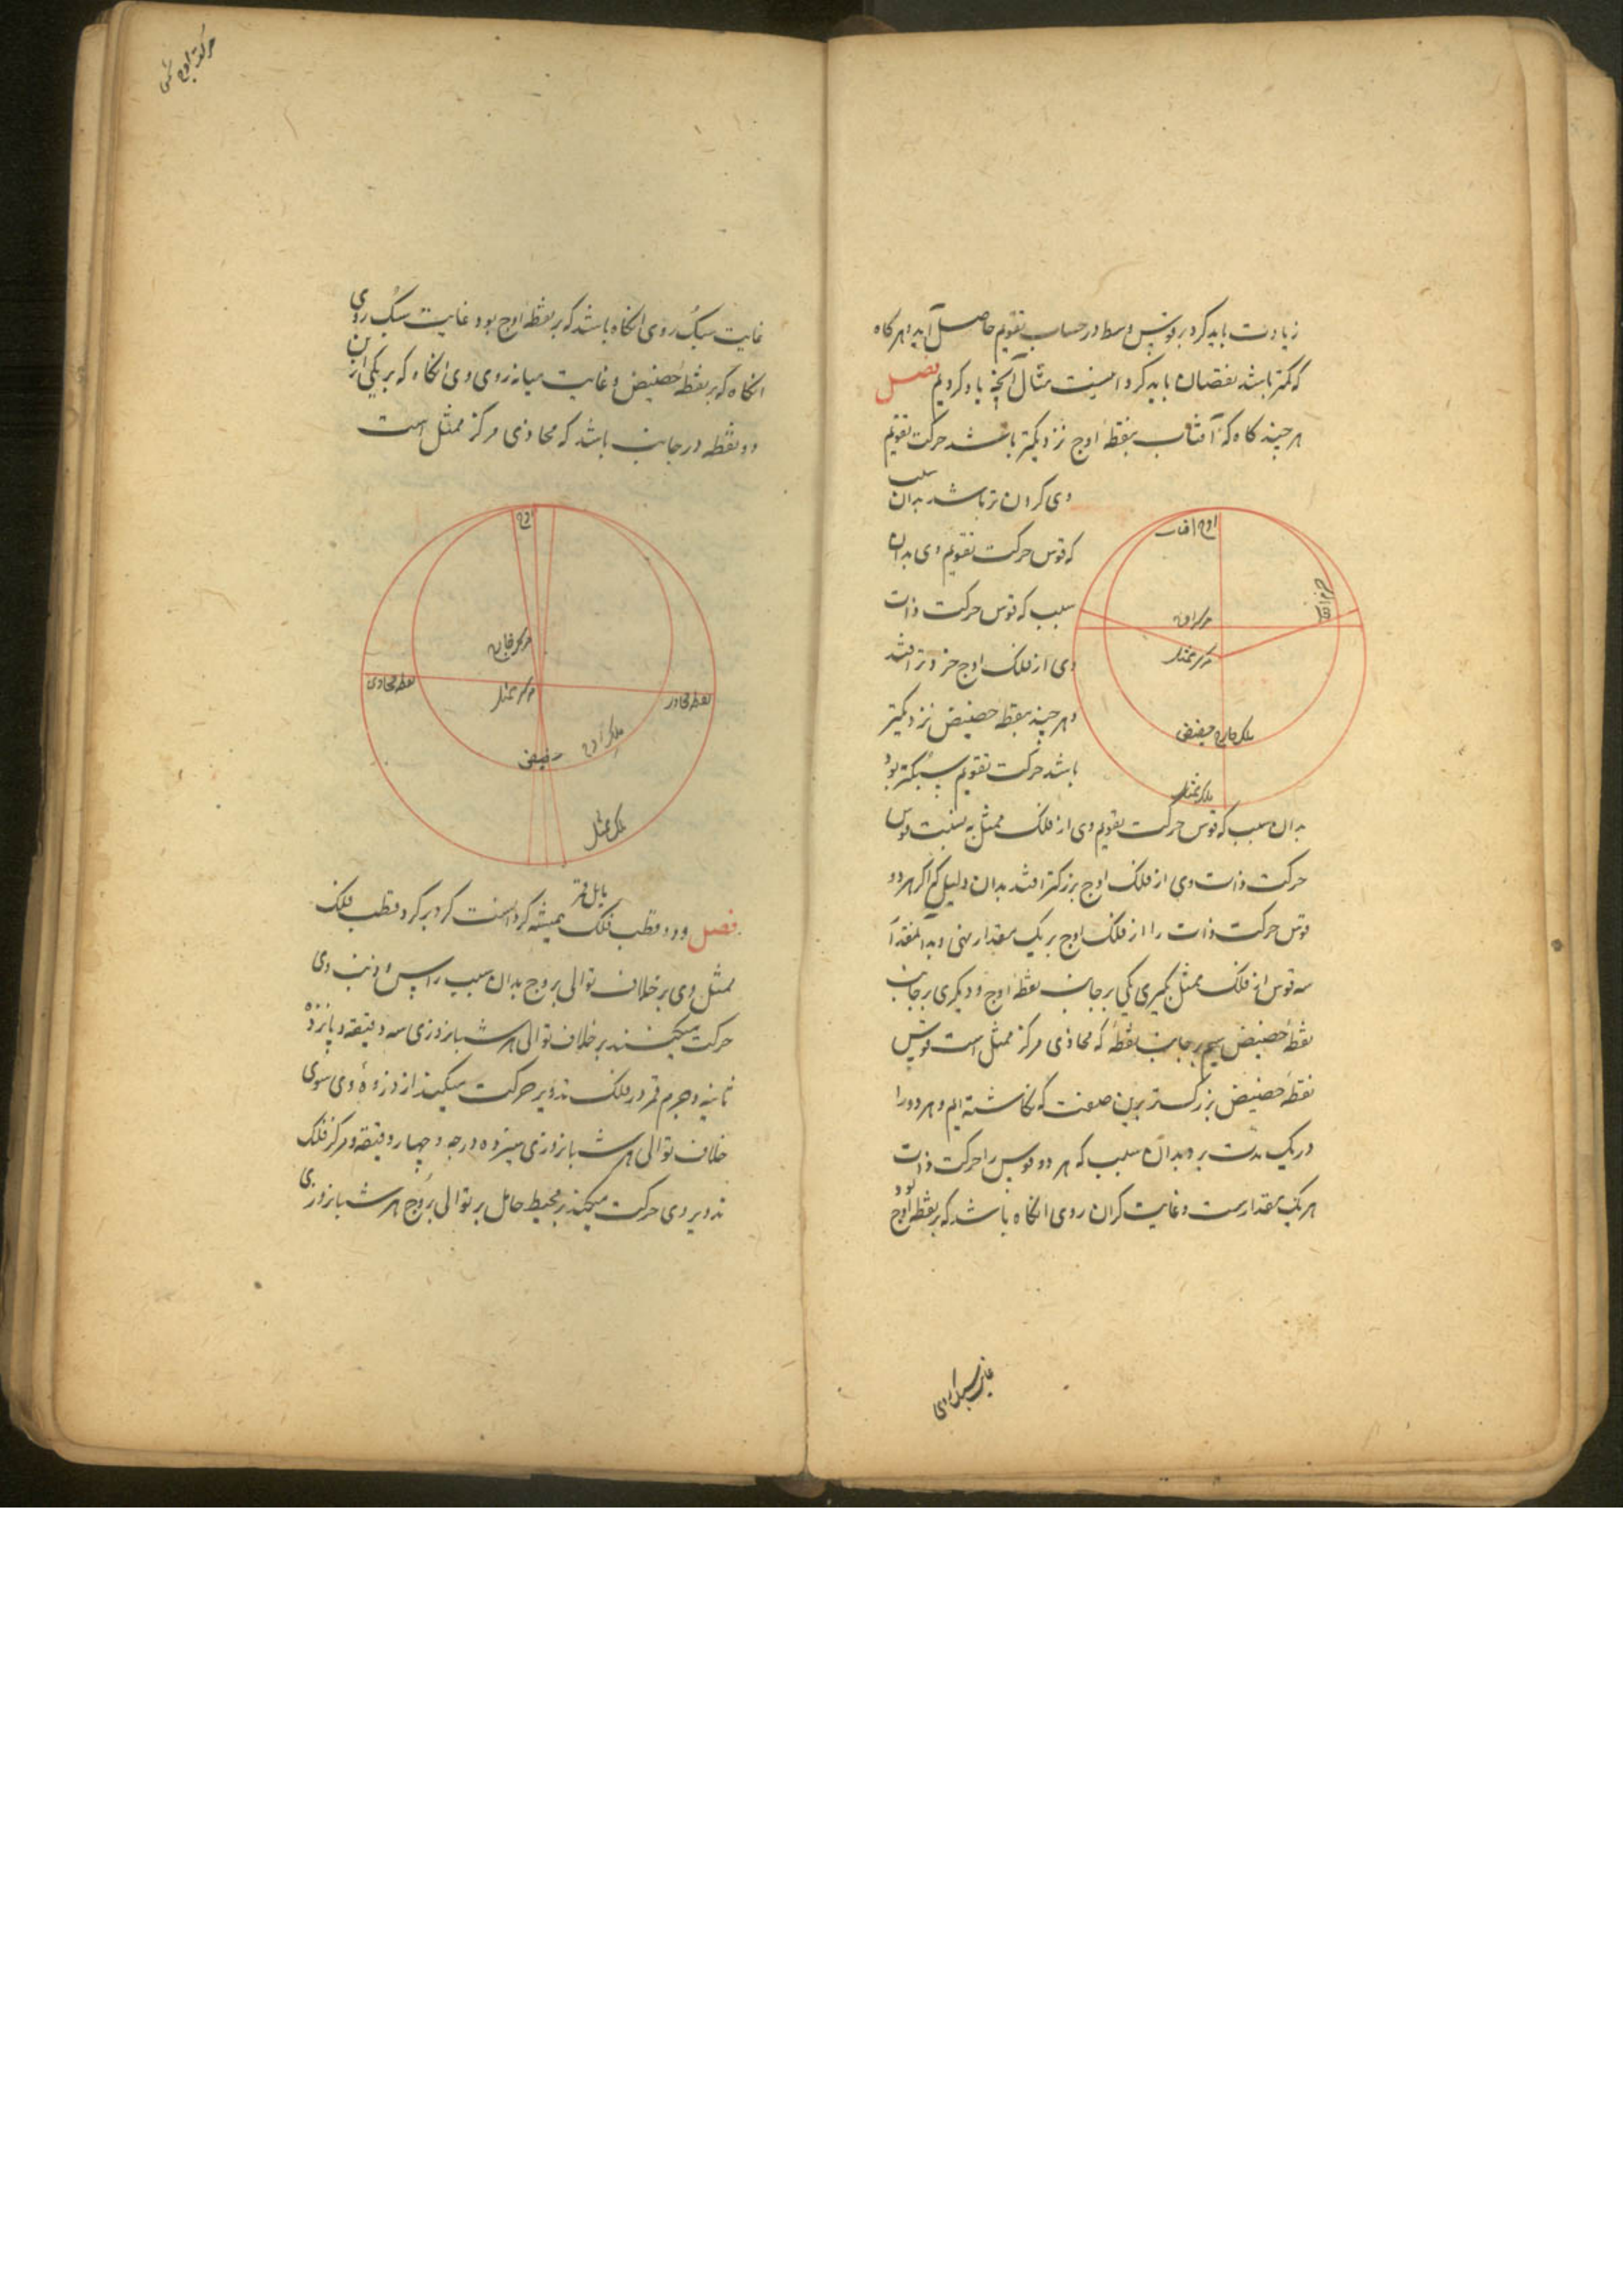 زیادت باید کرد بر قوس وسط در حساب تقویم حاصل آید و هرگاه
که کمتر باشد نقصان باید کرد اینست مثال آنچه یاد کردیم فصل
هر چند گاه که آفتاب بنقطه اوج نزدیکتر باشد حرکت تقویم
وی گران تر باشد بدان سبب
که قوس حرکت تقویم وی بدان
سبب که قوس حرکت ذات
وی از فلک اوج خردتر افتد
و هر چند بنقطه حضیض نزدیکتر
باشد حرکت تقویم سبکتر بود
بدان سبب که قوس حرکت تقویم وی از فلک ممثل به نسبت قوس
حرکت ذات وی از فلک اوج بزرگتر افتد بدان دلیل که اگر هر دو
قوس حرکت ذات را از فلک اوج بر یک مقدار نهی و بدانمقدار
سه قوس از فلک ممثل بگیری یکی بر جانب نقطه اوج و دیگری بر جانب
نقطه حضیض سیم بر جانب نقطه که محاذی مرکز ممثل است قوس
نقطه حضیض بزرگستر برین صفت که نگاشته ایم و هر دو را
در یک مدت برد بدان سبب که هر دو قوس را حرکت ذات
هر یک بمقدارست و غایت گران روی انگاه باشد که بر نقطه اوج بود
اوج آفتاب
جرم آفتاب
مرکز اوج
مرکز ممثل
حضیض
فلک ممثل
غایت سبک روی
حرکت اوج شمس
غایت سبک روی انگاه باشد که بر نقطه اوج بود و غایت سبک روی
انگاه که بر نقطه حضیض و غایت میانه روی وی انگاه که بر یکی ازین
دو نقطه در جانب باشد که محاذی مرکز ممثل است
اوج
مرکز خارج
مرکز ممثل
نقطه محاذی
نقطه محاذی
فلک اوج
حضیض
فلک ممثل
فصل و دو قطب فلک مایل قمر همیشه گردانست گرد بر گرد قطب فلک
ممثل وی بر خلاف توالی بروج بدان سبب راس و ذنب وی
حرکت میکنند بر خلاف توالی هر شبانروزی سه دقیقه و پانزده
ثانیه و جرم قمر در فلک تدویر حرکت میکند از ذروهٔ وی سوی
خلاف توالی هر شبانروزی سیزده درجه و چهار دقیقه و مرکز فلک
تدویر وی حرکت میکند بر محیط حامل بر توالی بروج هر شبانروزی